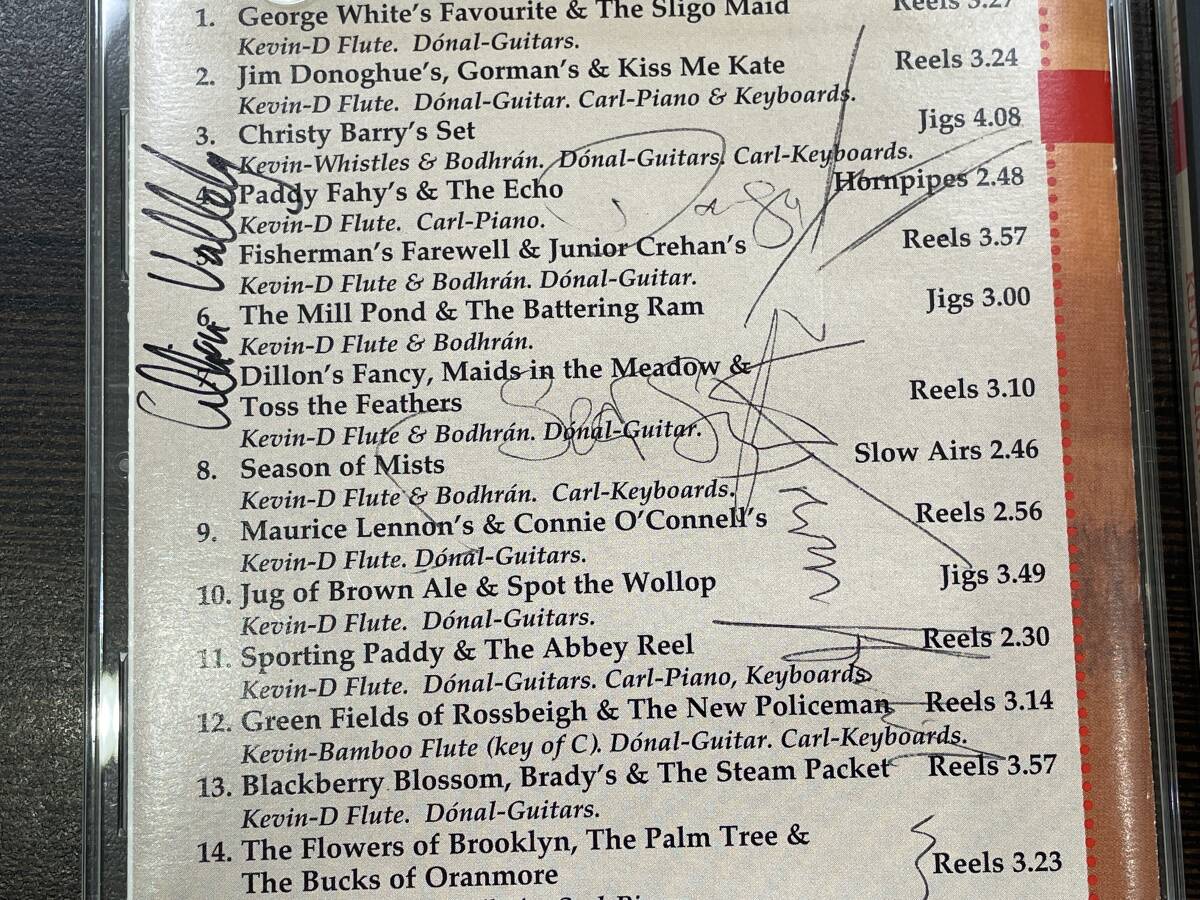 1. George White's Favourite & The Sligo Maid Reels 3.27
Kevin-D Flute. Dónal-Guitars.
2. Jim Donoghue's, Gorman's & Kiss Me Kate Reels 3.24
Kevin-D Flute. Dónal-Guitar. Carl-Piano & Keyboards.
3. Christy Barry's Set Jigs 4.08
Kevin-Whistles & Bodhrán. Dónal-Guitars. Carl-Keyboards.
4. Paddy Fahy's & The Echo Hornpipes 2.48
Kevin-D Flute. Carl-Piano.
5. Fisherman's Farewell & Junior Crehan's Reels 3.57
Kevin-D Flute & Bodhrán. Dónal-Guitar.
6. The Mill Pond & The Battering Ram Jigs 3.00
Kevin-D Flute & Bodhrán.
Dillon's Fancy, Maids in the Meadow &
Toss the Feathers Reels 3.10
Kevin-D Flute & Bodhrán. Dónal-Guitar.
8. Season of Mists Slow Airs 2.46
Kevin-D Flute & Bodhrán. Carl-Keyboards.
9. Maurice Lennon's & Connie O'Connell's Reels 2.56
Kevin-D Flute. Dónal-Guitars.
10. Jug of Brown Ale & Spot the Wollop Jigs 3.49
Kevin-D Flute. Dónal-Guitars.
11. Sporting Paddy & The Abbey Reel Reels 2.30
Kevin-D Flute. Dónal-Guitars. Carl-Piano, Keyboards
12. Green Fields of Rossbeigh & The New Policeman Reels 3.14
Kevin-Bamboo Flute (key of C). Dónal-Guitar. Carl-Keyboards.
13. Blackberry Blossom, Brady's & The Steam Packet Reels 3.57
Kevin-D Flute. Dónal-Guitars.
14. The Flowers of Brooklyn, The Palm Tree &
The Bucks of Oranmore Reels 3.23